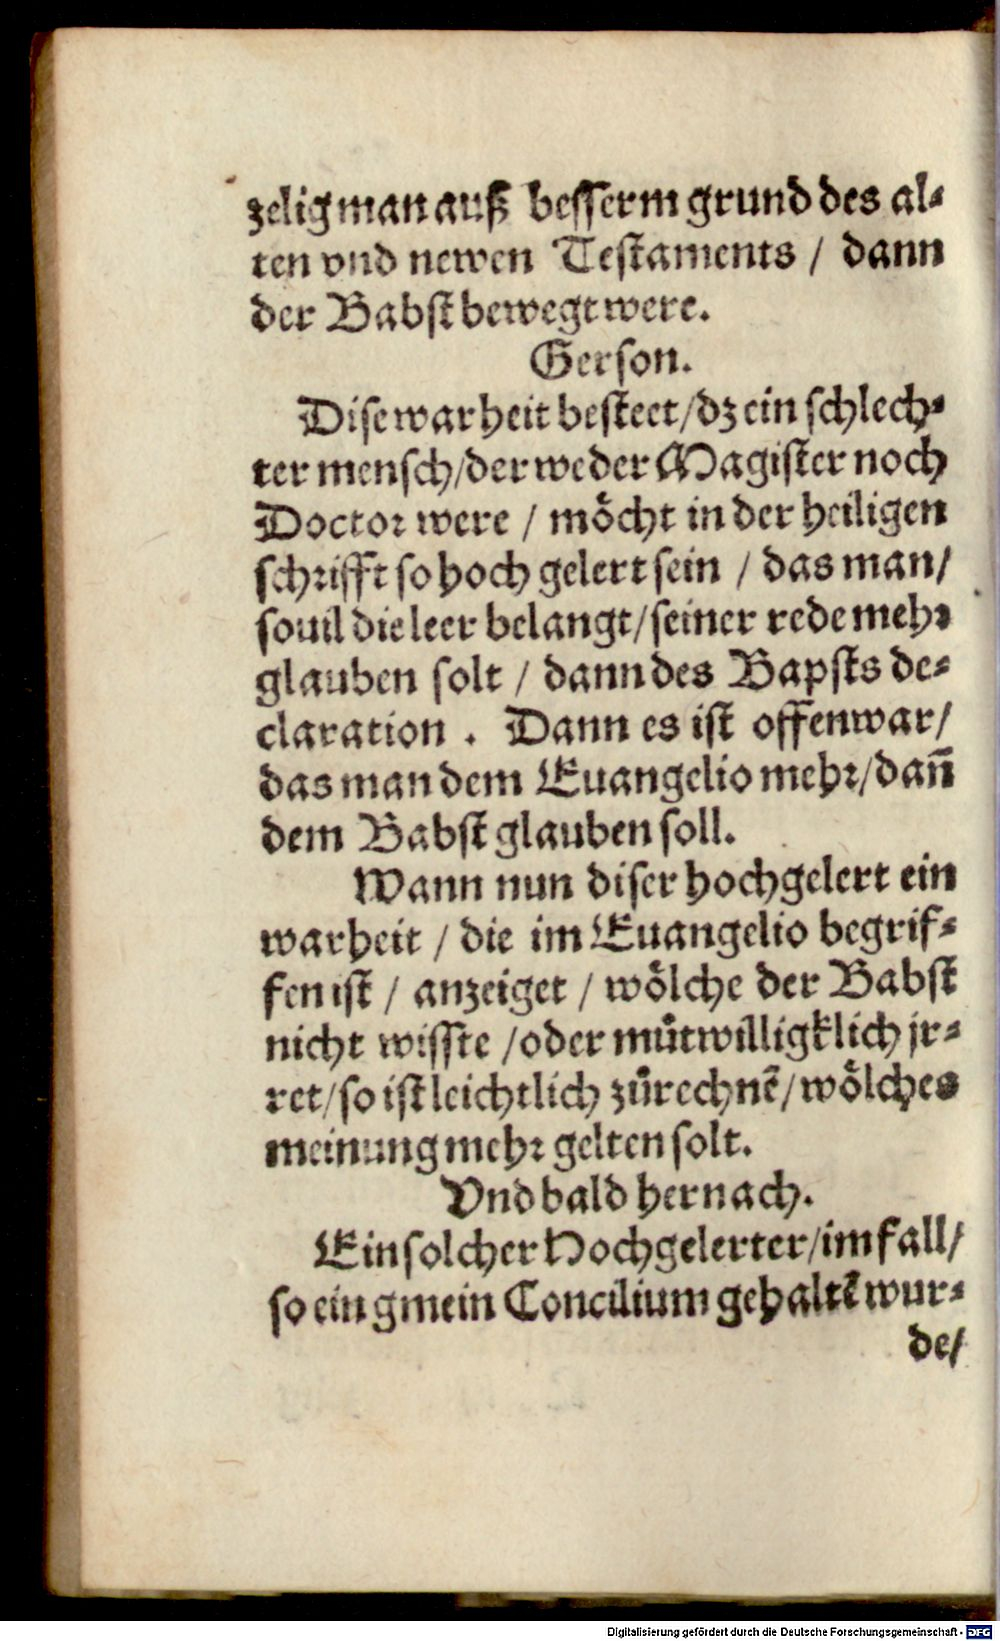 zelig man auß besserm grund des al⸗
ten vnd newen Testaments / dann
der Babst bewegt were.
Gerson.
Dise warheit besteet / dz ein schlech⸗
ter mensch / der weder Magister noch
Doctor were / möcht in der heiligen
schrifft so hoch gelert sein / das man /
souil die leer belangt / seiner rede mehr
glauben solt / dann des Bapsts de⸗
claration . Dann es ist offenwar /
das man dem Euangelio mehr / dañ
dem Babst glauben soll.
Wann nun diser hochgelert ein
warheit / die im Euangelio begrif⸗
fen ist / anzeiget / wölche der Babst
nicht wisste / oder můtwilligklich jr⸗
ret / so ist leichtlich zůrechnẽ / wölches
meinung mehr gelten solt.
Vnd bald hernach.
Ein solcher Hochgelerter / im fall /
so ein gmein Concilium gehaltẽ wur⸗
de /
Digitalisierung gefördert durch die Deutsche Forschungsgemeinschaft - DFG